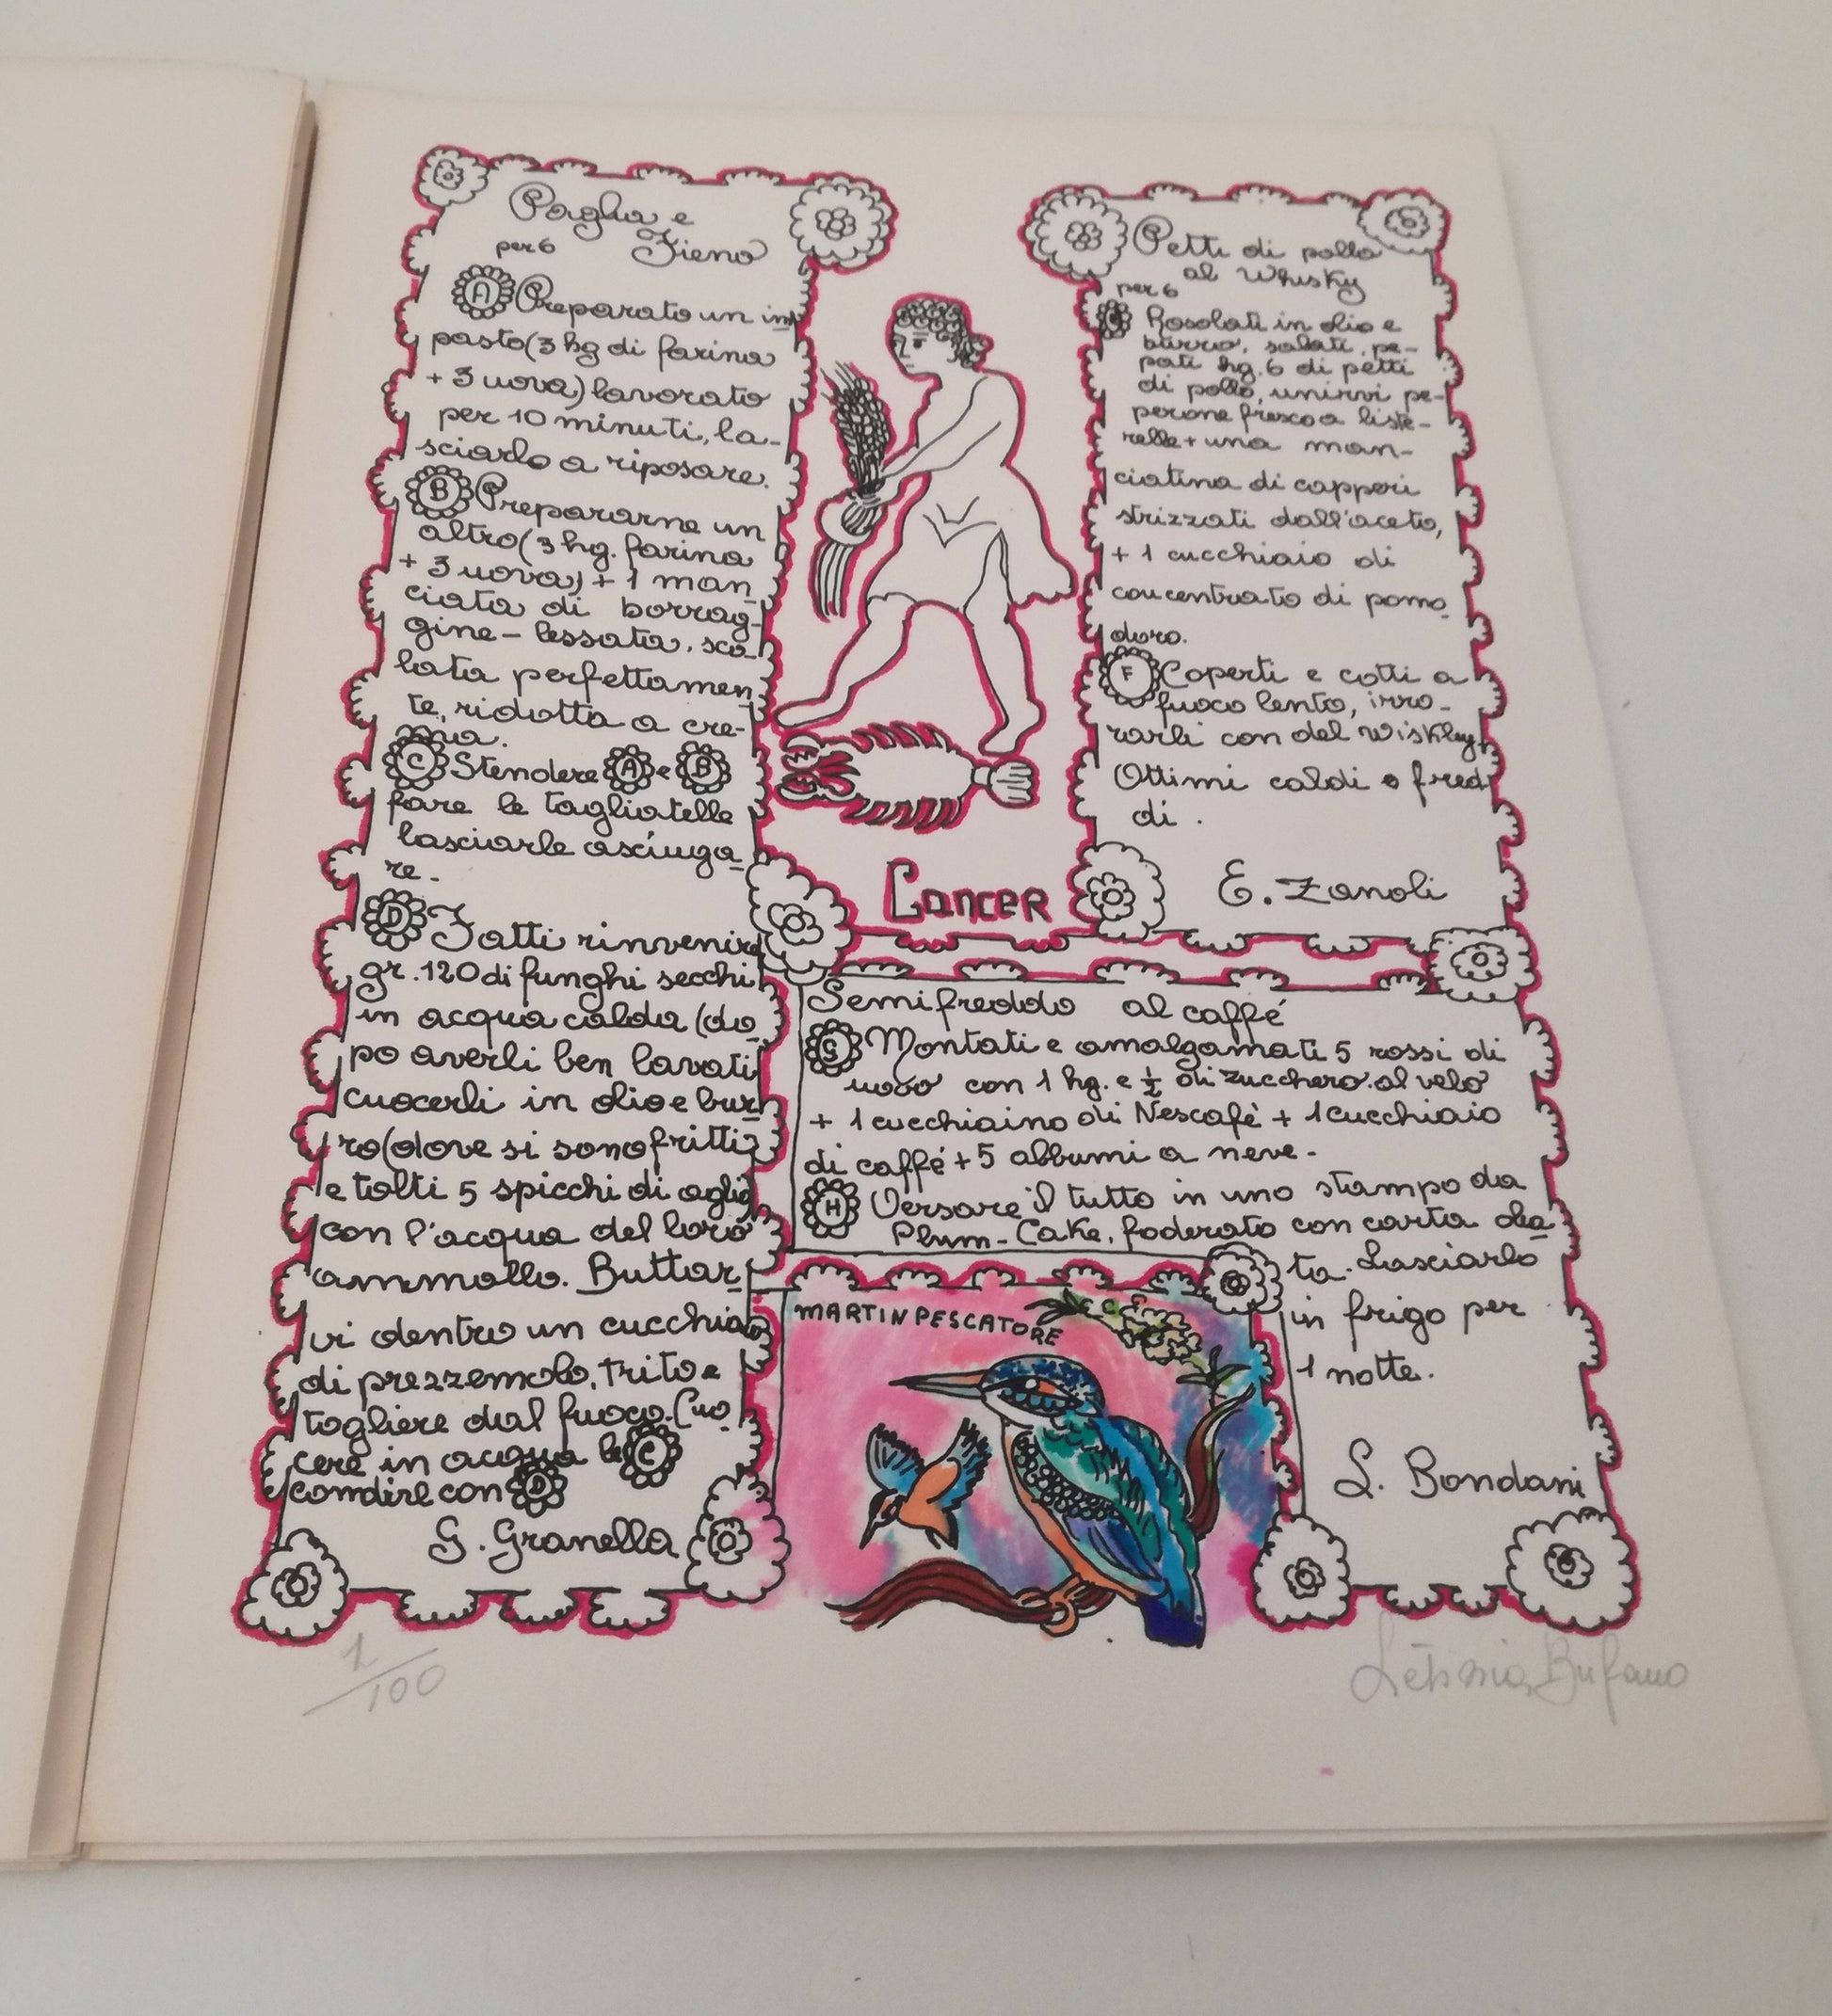 Paglia e
per 6 Fieno
A Preparato un im
pasto (3 hg di farina
+ 3 uova) lavorato
per 10 minuti, la-
sciarlo a riposare.
B Prepararne un
altro (3 hg. farina
+ 3 uova) + 1 man
ciata di borrag-
gine - lessata, sco-
lata perfettamen
te, ridotta a cre-
ma.
C Stendere A e B
fare le tagliatelle
lasciarle asciuga
re.
D Fatti rinvenire
gr. 120 di funghi secchi
in acqua calda (do
po averli ben lavati
cuocerli in olio e bur
ro (dove si sono fritti
e tolti 5 spicchi di aglio
con l'acqua del loro
ammollo. Buttar
vi dentro un cucchiaio
di prezzemolo, trito e
togliere dal fuoco. Cuo
cere in acqua le C
condire con D
G. Granella
Petti di pollo
al Whisky
per 6
Rosolati in olio e
burro, salati, pe-
pati hg. 6 di petti
di pollo, unirvi pe-
perone fresco a liste-
relle + una man-
ciatina di capperi
strizzati dall'aceto,
+ 1 cucchiaio di
concentrato di pomo
doro.
F Coperti e cotti a
fuoco lento, irro-
rarli con del Wiskley
Ottimi caldi o fred
di.
E. Zanoli
Cancer
Semifreddo al caffé
G Montati e amalgamati 5 rossi di
uovo con 1 hg. e ½ di zucchero al velo
+ 1 cucchiaino di Nescafè + 1 cucchiaio
di caffé + 5 albumi a neve.
H Versare il tutto in uno stampo da
Plum-Cake, foderato con carta olea
ta. Lasciarlo
in frigo per
1 notte.
L. Bondani
MARTIN PESCATORE
1/100
Bufano